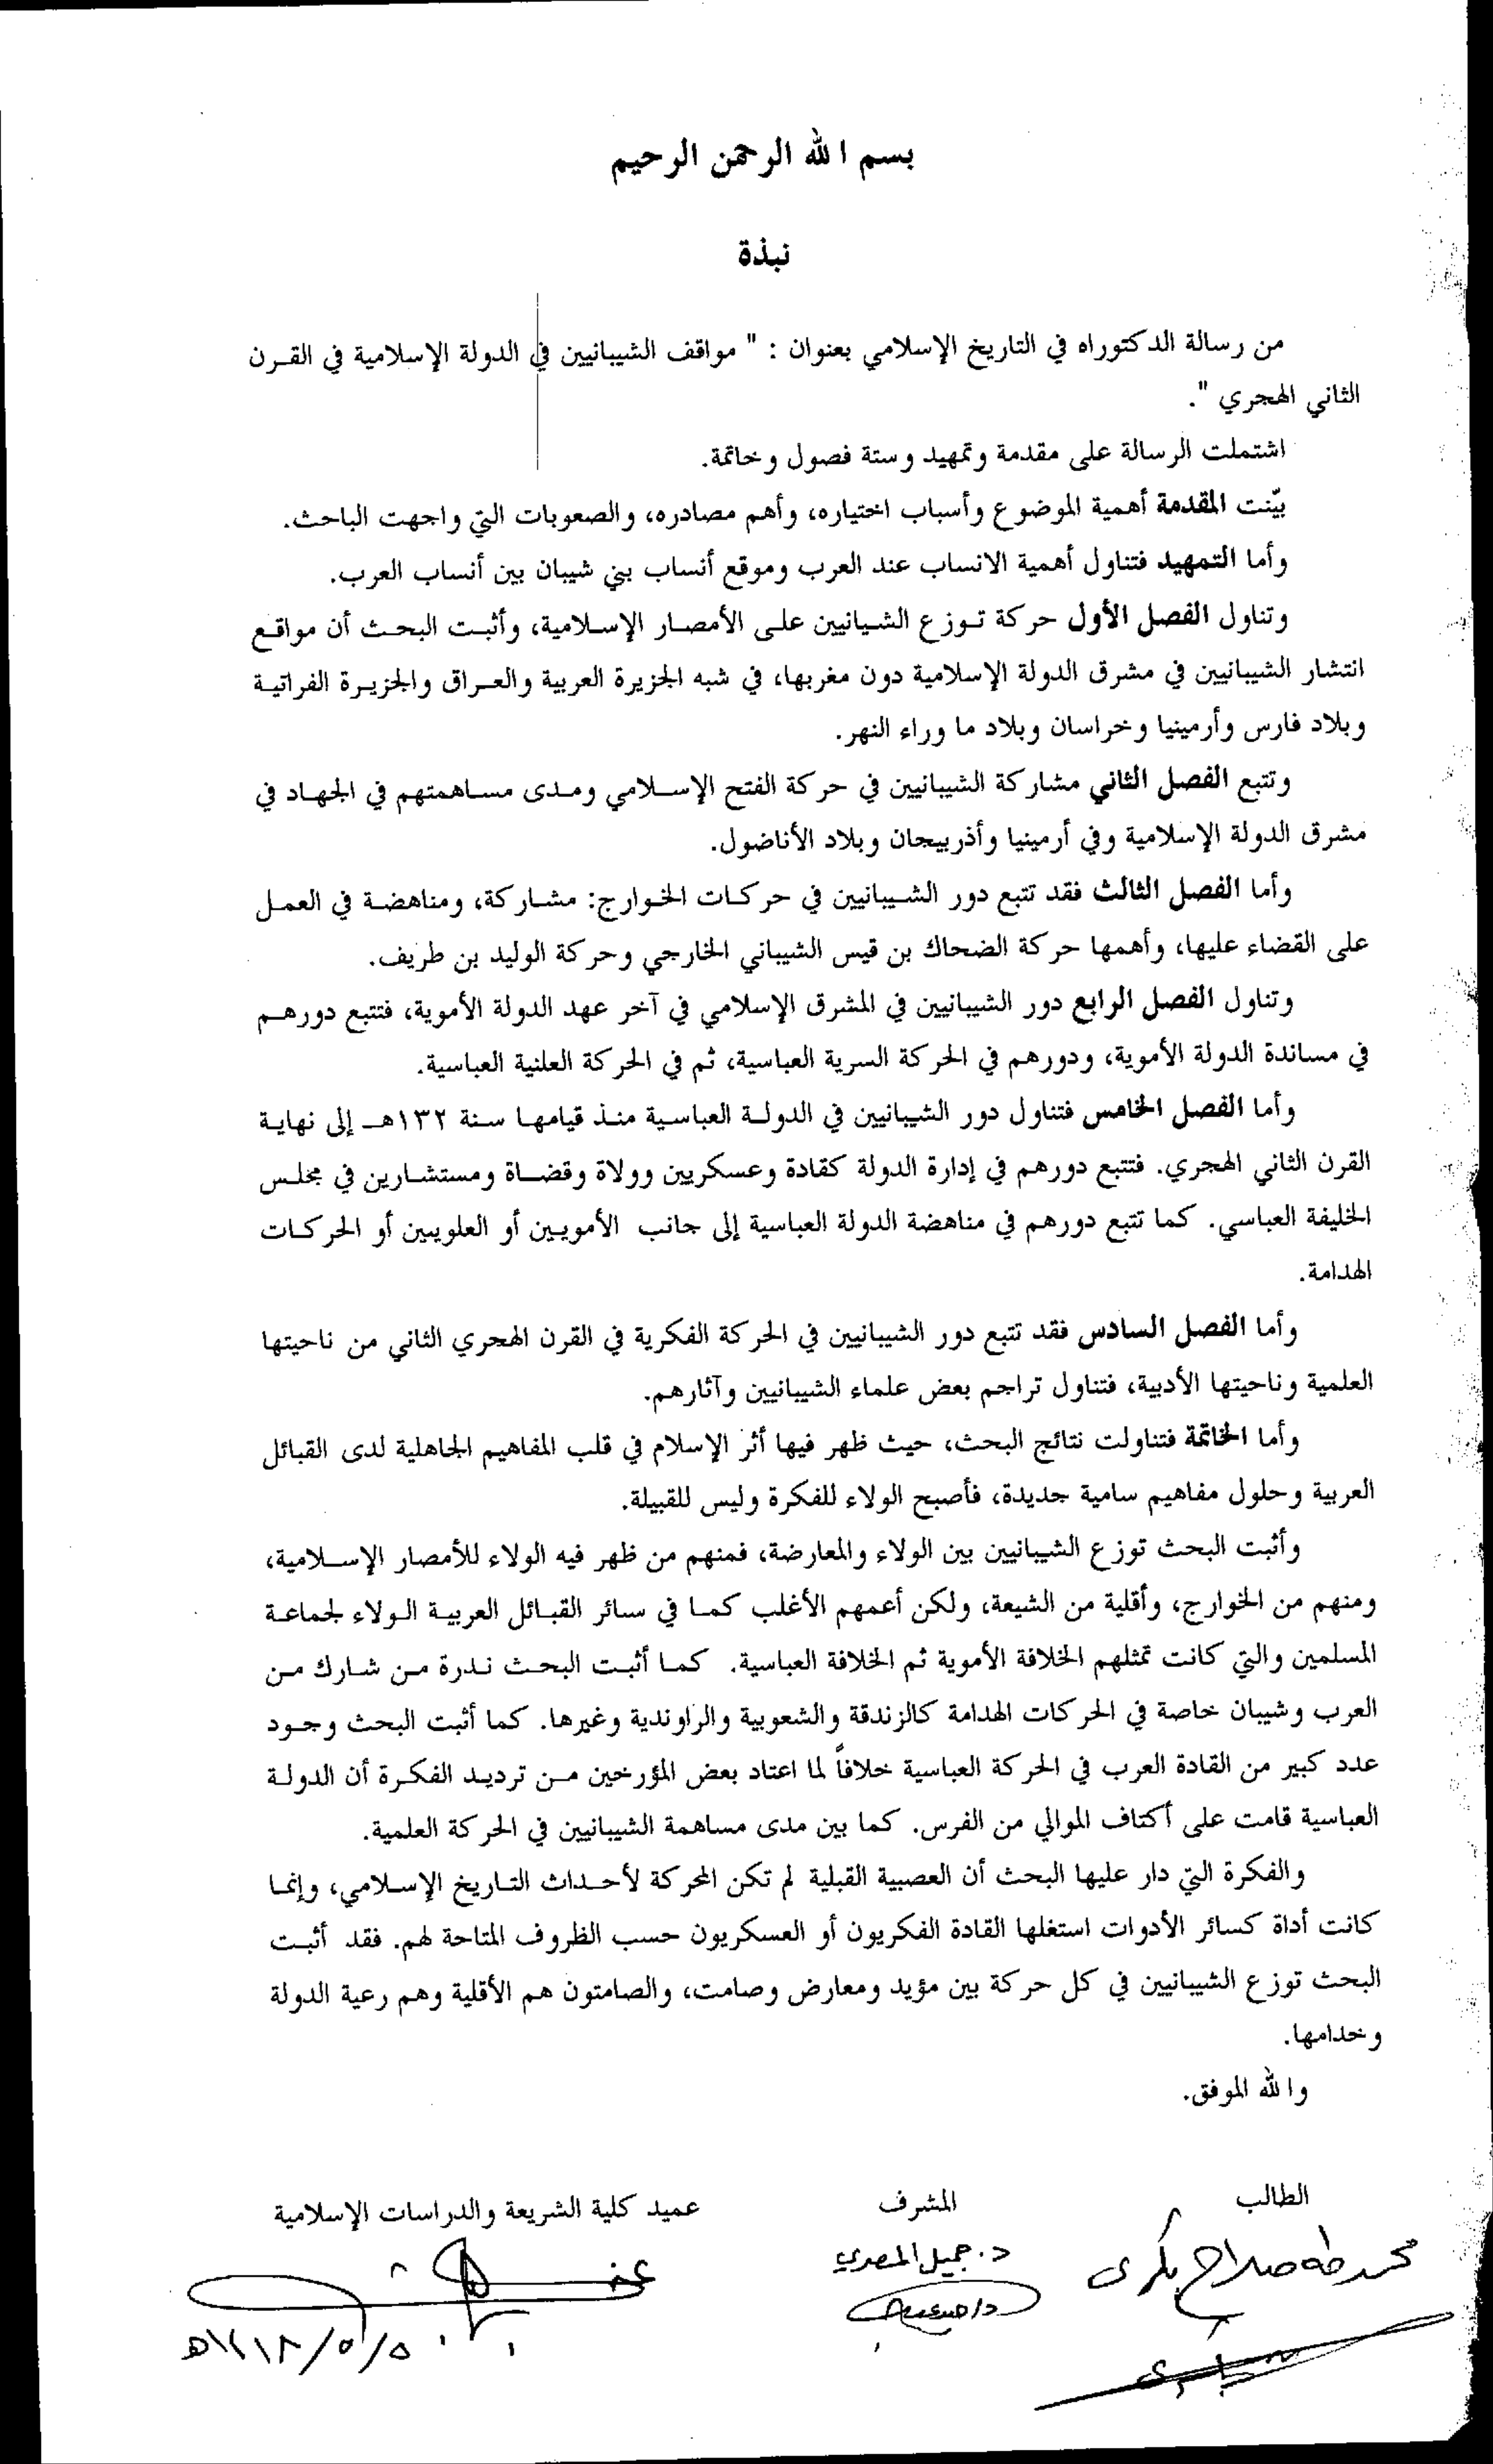 بسم الله الرحمن الرحيم
نبذة
من رسالة الدكتوراه في التاريخ الإسلامي بعنوان : " مواقف الشيبانيين في الدولة الإسلامية في القرن
الثاني الهجري ".
اشتملت الرسالة على مقدمة وتمهيد وستة فصول وخاتمة.
بيّنت المقدمة أهمية الموضوع وأسباب اختياره، وأهم مصادره، والصعوبات التي واجهت الباحث.
وأما التمهيد فتناول أهمية الانساب عند العرب وموقع أنساب بني شيبان بين أنساب العرب.
وتناول الفصل الأول حركة توزع الشيانيين على الأمصار الإسلامية، وأثبت البحث أن مواقع
انتشار الشيبانيين في مشرق الدولة الإسلامية دون مغربها، في شبه الجزيرة العربية والعراق والجزيرة الفراتية
وبلاد فارس وأرمينيا وخراسان وبلاد ما وراء النهر.
وتتبع الفصل الثاني مشاركة الشيبانيين في حركة الفتح الإسلامي ومدى مساهمتهم في الجهاد في
مشرق الدولة الإسلامية وفي أرمينيا وأذربيجان وبلاد الأناضول.
وأما الفصل الثالث فقد تتبع دور الشيبانيين في حركات الخوارج: مشاركة، ومناهضة في العمل
على القضاء عليها، وأهمها حركة الضحاك بن قيس الشيباني الخارجي وحركة الوليد بن طريف.
وتناول الفصل الرابع دور الشيبانيين في المشرق الإسلامي في آخر عهد الدولة الأموية، فتتبع دورهم
في مساندة الدولة الأموية، ودورهم في الحركة السرية العباسية، ثم في الحركة العلنية العباسية.
وأما الفصل الخامس فتناول دور الشيبانيين في الدولة العباسية منذ قيامها سنة ١٣٢هـ إلى نهاية
القرن الثاني الهجري. فتتبع دورهم في إدارة الدولة كقادة وعسكريين وولاة وقضاة ومستشارين في مجلس
الخليفة العباسي. كما تتبع دورهم في مناهضة الدولة العباسية إلى جانب الأمويين أو العلويين أو الحركات
الهدامة.
وأما الفصل السادس فقد تتبع دور الشيبانيين في الحركة الفكرية في القرن الهجري الثاني من ناحيتها
العلمية وناحيتها الأدبية، فتناول تراجم بعض علماء الشيبانيين وآثارهم.
وأما الخاتمة فتناولت نتائج البحث، حيث ظهر فيها أثر الإسلام في قلب المفاهيم الجاهلية لدى القبائل
العربية وحلول مفاهيم سامية جديدة، فأصبح الولاء للفكرة وليس للقبيلة.
وأثبت البحث توزع الشيبانيين بين الولاء والمعارضة، فمنهم من ظهر فيه الولاء للأمصار الإسلامية،
ومنهم من الخوارج، وأقلية من الشيعة، ولكن أعمهم الأغلب كما في سائر القبائل العربية الولاء لجماعة
المسلمين والتي كانت تمثلهم الخلافة الأموية ثم الخلافة العباسية. كما أثبت البحث ندرة من شارك من
العرب وشيبان خاصة في الحركات الهدامة كالزندقة والشعوبية والراوندية وغيرها. كما أثبت البحث وجود
عدد كبير من القادة العرب في الحركة العباسية خلافاً لما اعتاد بعض المؤرخين من ترديد الفكرة أن الدولة
العباسية قامت على أكتاف الموالي من الفرس. كما بين مدى مساهمة الشيبانيين في الحركة العلمية.
والفكرة التي دار عليها البحث أن العصبية القبلية لم تكن المحركة لأحداث التاريخ الإسلامي، وإنما
كانت أداة كسائر الأدوات استغلها القادة الفكريون أو العسكريون حسب الظروف المتاحة لهم. فقد أثبت
البحث توزع الشيبانيين في كل حركة بين مؤيد ومعارض وصامت، والصامتون هم الأقلية وهم رعية الدولة
وخدامها.
والله الموفق.
الطالب
المشرف
عميد كلية الشريعة والدراسات الإسلامية
محمد طه صلاح بكري
د. جميل المصري
١٤١٨/٥/٥هـ